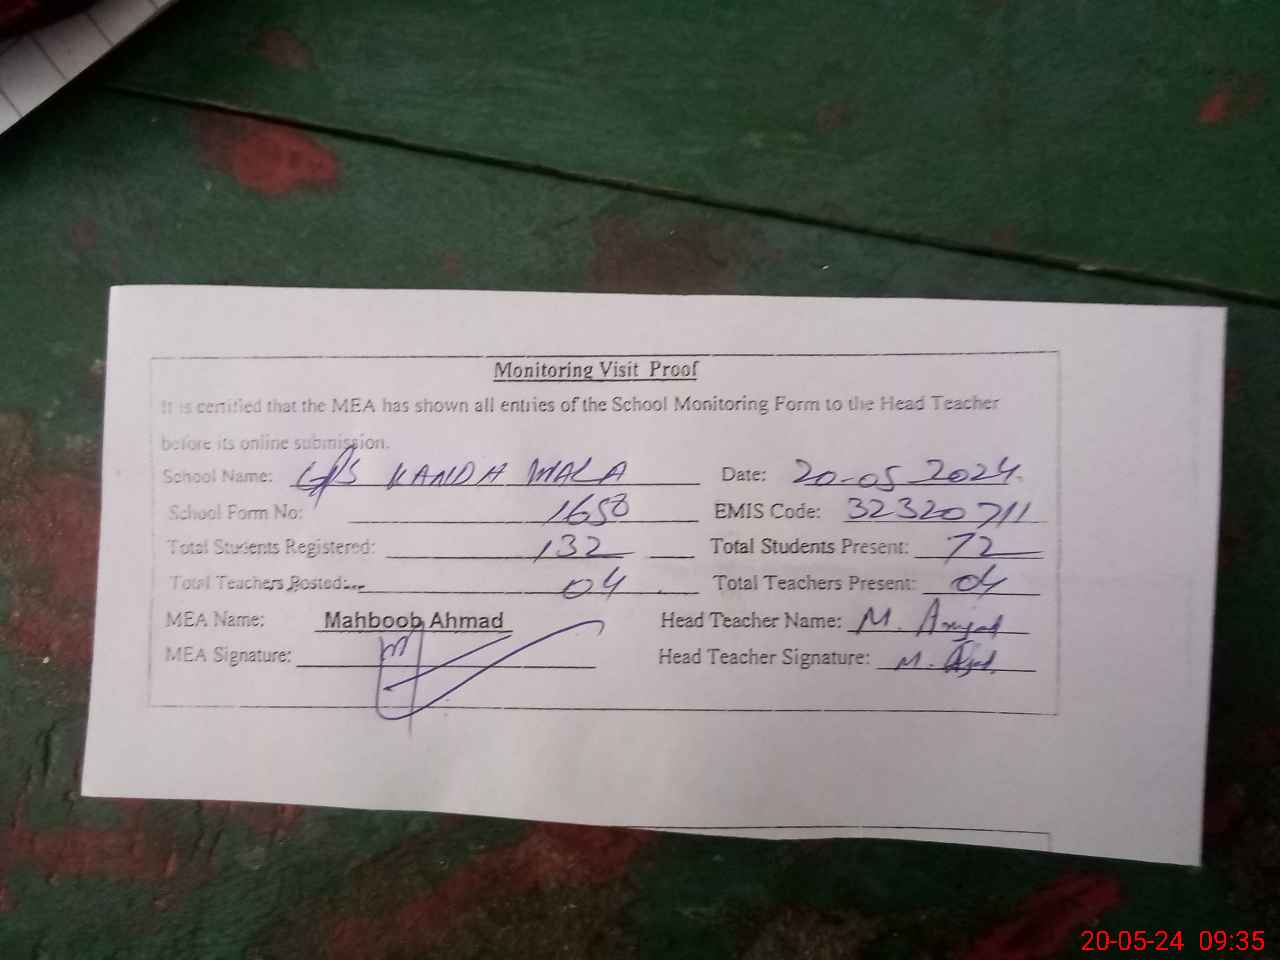 Monitoring Visit Proof
It is certified that the MEA has shown all entries of the School Monitoring Form to the Head Teacher
before its online submission.
School Name: GPS KANDA WALA Date: 20-05-2024.
School Form No: 1658 EMIS Code: 32320711
Total Students Registered: 132 Total Students Present: 72
Total Teachers Posted: 04 Total Teachers Present: 04
MEA Name: Mahboob Ahmad Head Teacher Name: M. Amjad
MEA Signature: Head Teacher Signature: M.
20-05-24 09:35